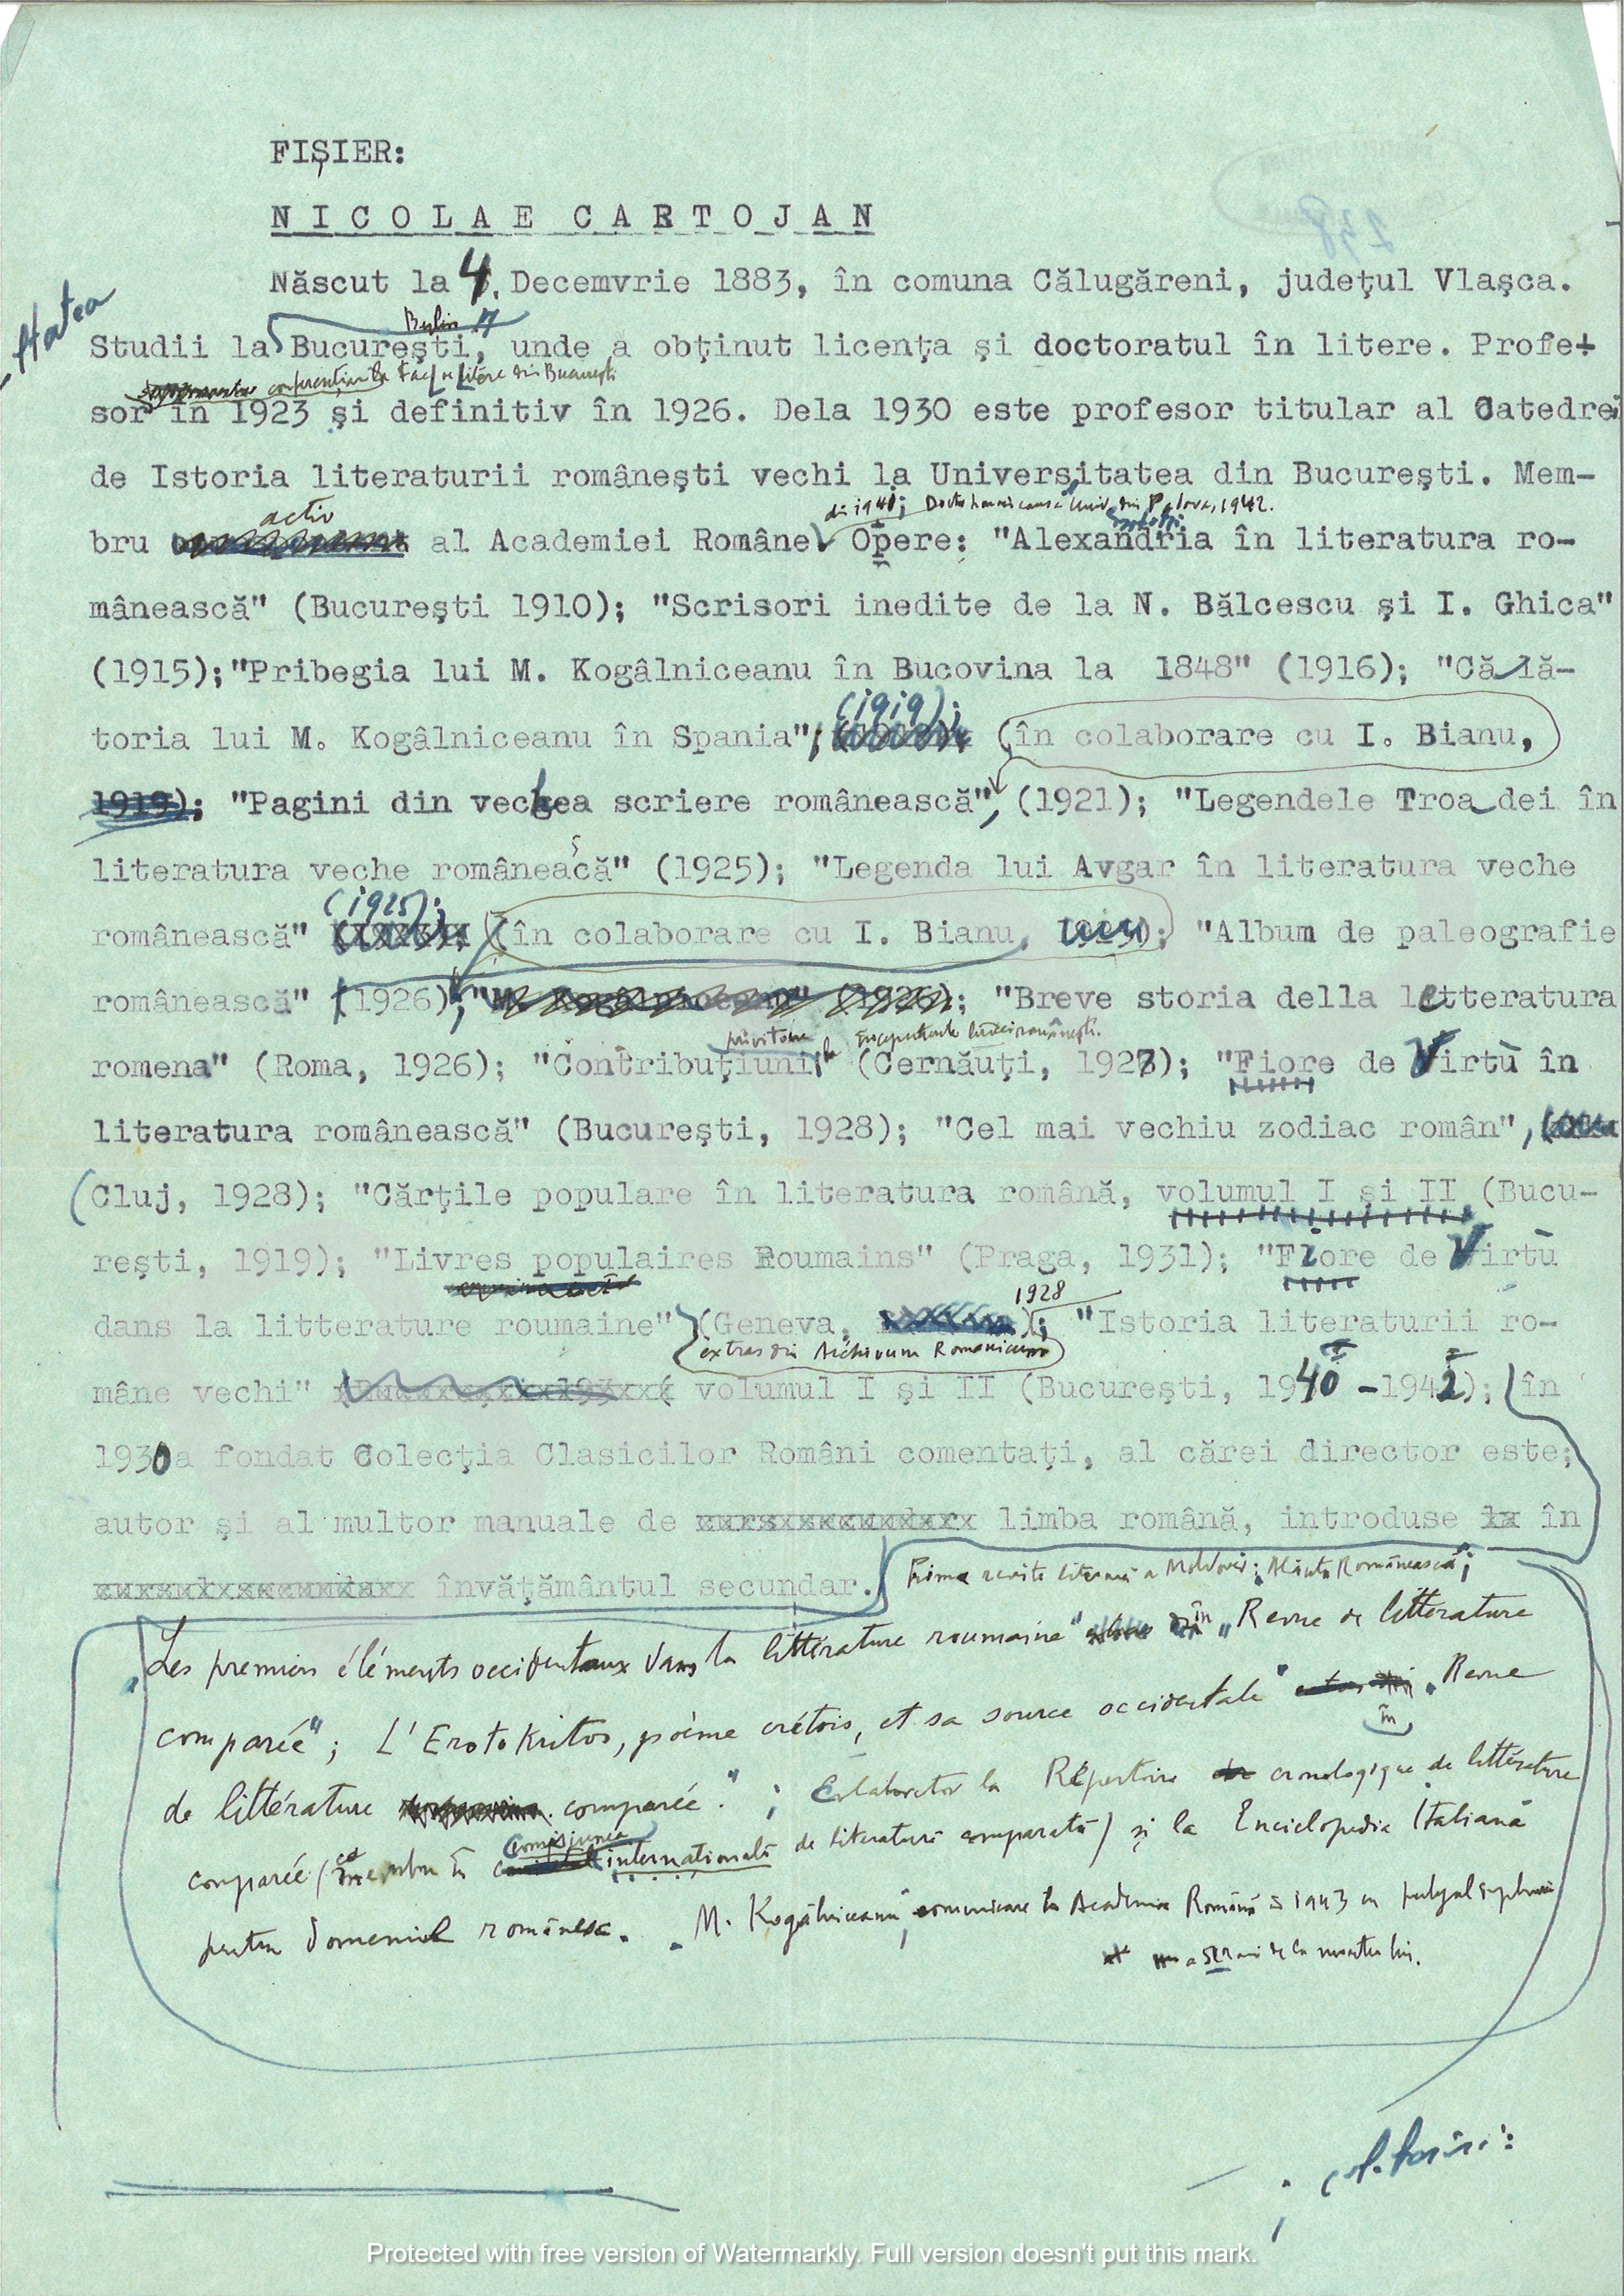 FIȘIER:
NICOLAE CARTOJAN
Născut la 4. Decemvrie 1883, în comuna Călugăreni, județul Vlașca.
Berlin
Studii la București, unde a obținut licența și doctoratul în litere. Profe-
conferențiar la Fac. de Litere din București
sor în 1923 și definitiv în 1926. Dela 1930 este profesor titular al Catedrei
de Istoria literaturii românești vechi la Universitatea din București. Mem-
activ
din 1941; Doctor honoris causa Univ. din Padova, 1942.
bru al Academiei Române. Opere: "Alexandria în literatura ro-
mânească" (București 1910); "Scrisori inedite de la N. Bălcescu și I. Ghica"
(1915);"Pribegia lui M. Kogâlniceanu în Bucovina la 1848" (1916); "Călă-
(1919);
toria lui M. Kogâlniceanu în Spania", (în colaborare cu I. Bianu,
1919); "Pagini din vechea scriere românească", (1921); "Legendele Troadei în
s
literatura veche româneacă" (1925); "Legenda lui Avgar în literatura veche
(1925);
românească" (în colaborare cu I. Bianu, ); "Album de paleografie
românească" (1926); "M. Kogâlniceanu" (1926); "Breve storia della letteratura
privitoare la începuturile literaturii românești.
romena" (Roma, 1926); "Contribuțiuni" (Cernăuți, 1927); "Fiore de Virtù în
literatura românească" (București, 1928); "Cel mai vechiu zodiac român",
(Cluj, 1928); "Cărțile populare în literatura română, volumul I și II (Bucu-
rești, 1919); "Livres populaires Roumains" (Praga, 1931); "Fiore de Virtù
1928
dans la litterature roumaine" (Geneva, ); "Istoria literaturii ro-
extras din Archivum Romanicum
mâne vechi" volumul I și II (București, 1940 -1942); în
1930 a fondat Colecția Clasicilor Români comentați, al cărei director este;
autor și al multor manuale de limba română, introduse în
învățământul secundar.
Prima revistă literară a Moldovei: Alăuta Românească";
„Les premiers éléments occidentaux dans la littérature roumaine" în „Revue de littérature
comparée"; L'Erotokritos, poème crétois, et sa source occidentale" în „Revue
de littérature comparée."; Colaborator la Répertoire cronologique de littérature
comisiunea
comparée (membru în internațională de literatură comparată) și la Enciclopedia Italiană
pentru domeniul românesc. „M. Kogălniceanu", comunicare la Academia Română 1943 cu prilejul
de la moartea lui.
Protected with free version of Watermarkly. Full version doesn't put this mark.